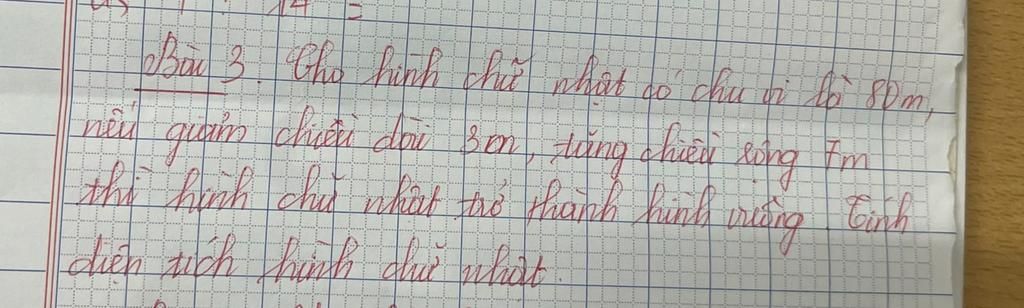 14 =
Bài 3. Cho hình chữ nhật có chu vi là 80m,
nếu giảm chiều dài 3m, tăng chiều rộng 7m
thì hình chữ nhật trở thành hình vuông. Tính
diện tích hình chữ nhật.